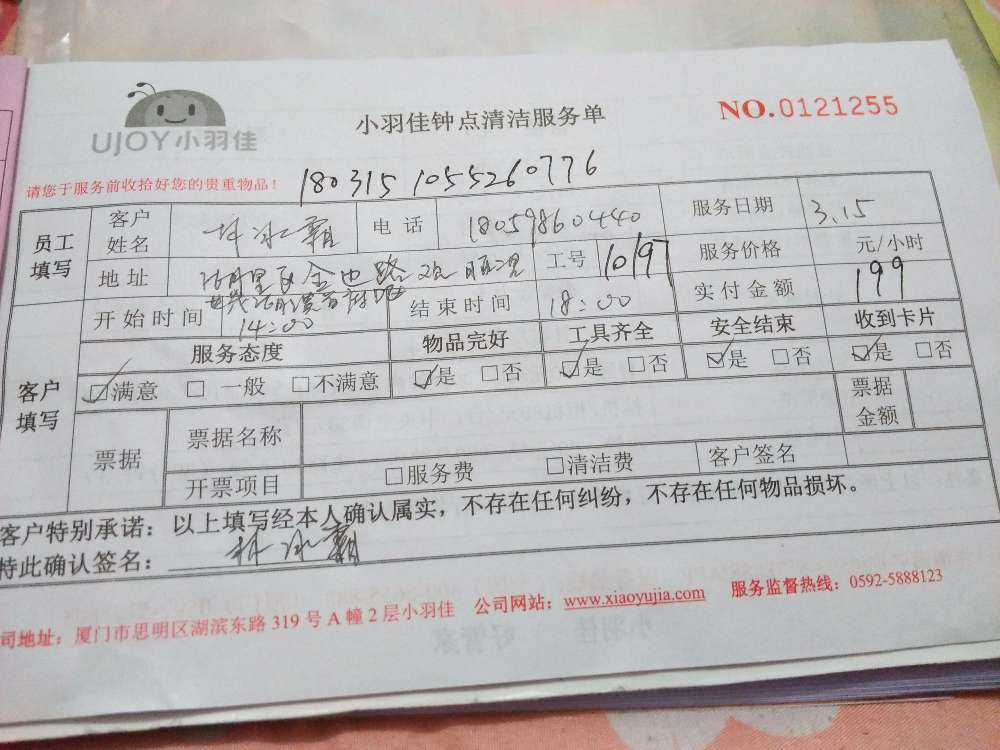 UJOY小羽佳
小羽佳钟点清洁服务单
NO.0121255
请您于服务前收拾好您的贵重物品！
1803151055260776
员工填写 客户姓名 电话 18059860440 服务日期 3.15
地址 工号 10197 服务价格 元/小时
开始时间 14:00 结束时间 18:00 实付金额 199
客户填写 服务态度 物品完好 工具齐全 安全结束 收到卡片
☑满意 □一般 □不满意 ☑是 □否 ☑是 □否 ☑是 □否 ☑是 □否
票据 票据名称 票据金额
开票项目 □服务费 □清洁费 客户签名
客户特别承诺：以上填写经本人确认属实，不存在任何纠纷，不存在任何物品损坏。
特此确认签名：
司地址：厦门市思明区湖滨东路319号A幢2层小羽佳 公司网站：www.xiaoyujia.com 服务监督热线：0592-5888123